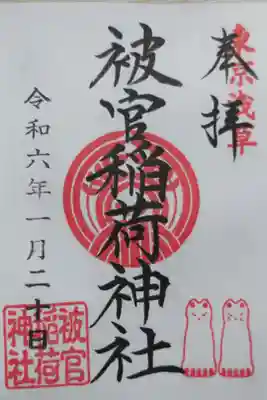 東京浅草
奉拝
被官稲荷神社
令和六年一月二十日
被官
稲荷
神社